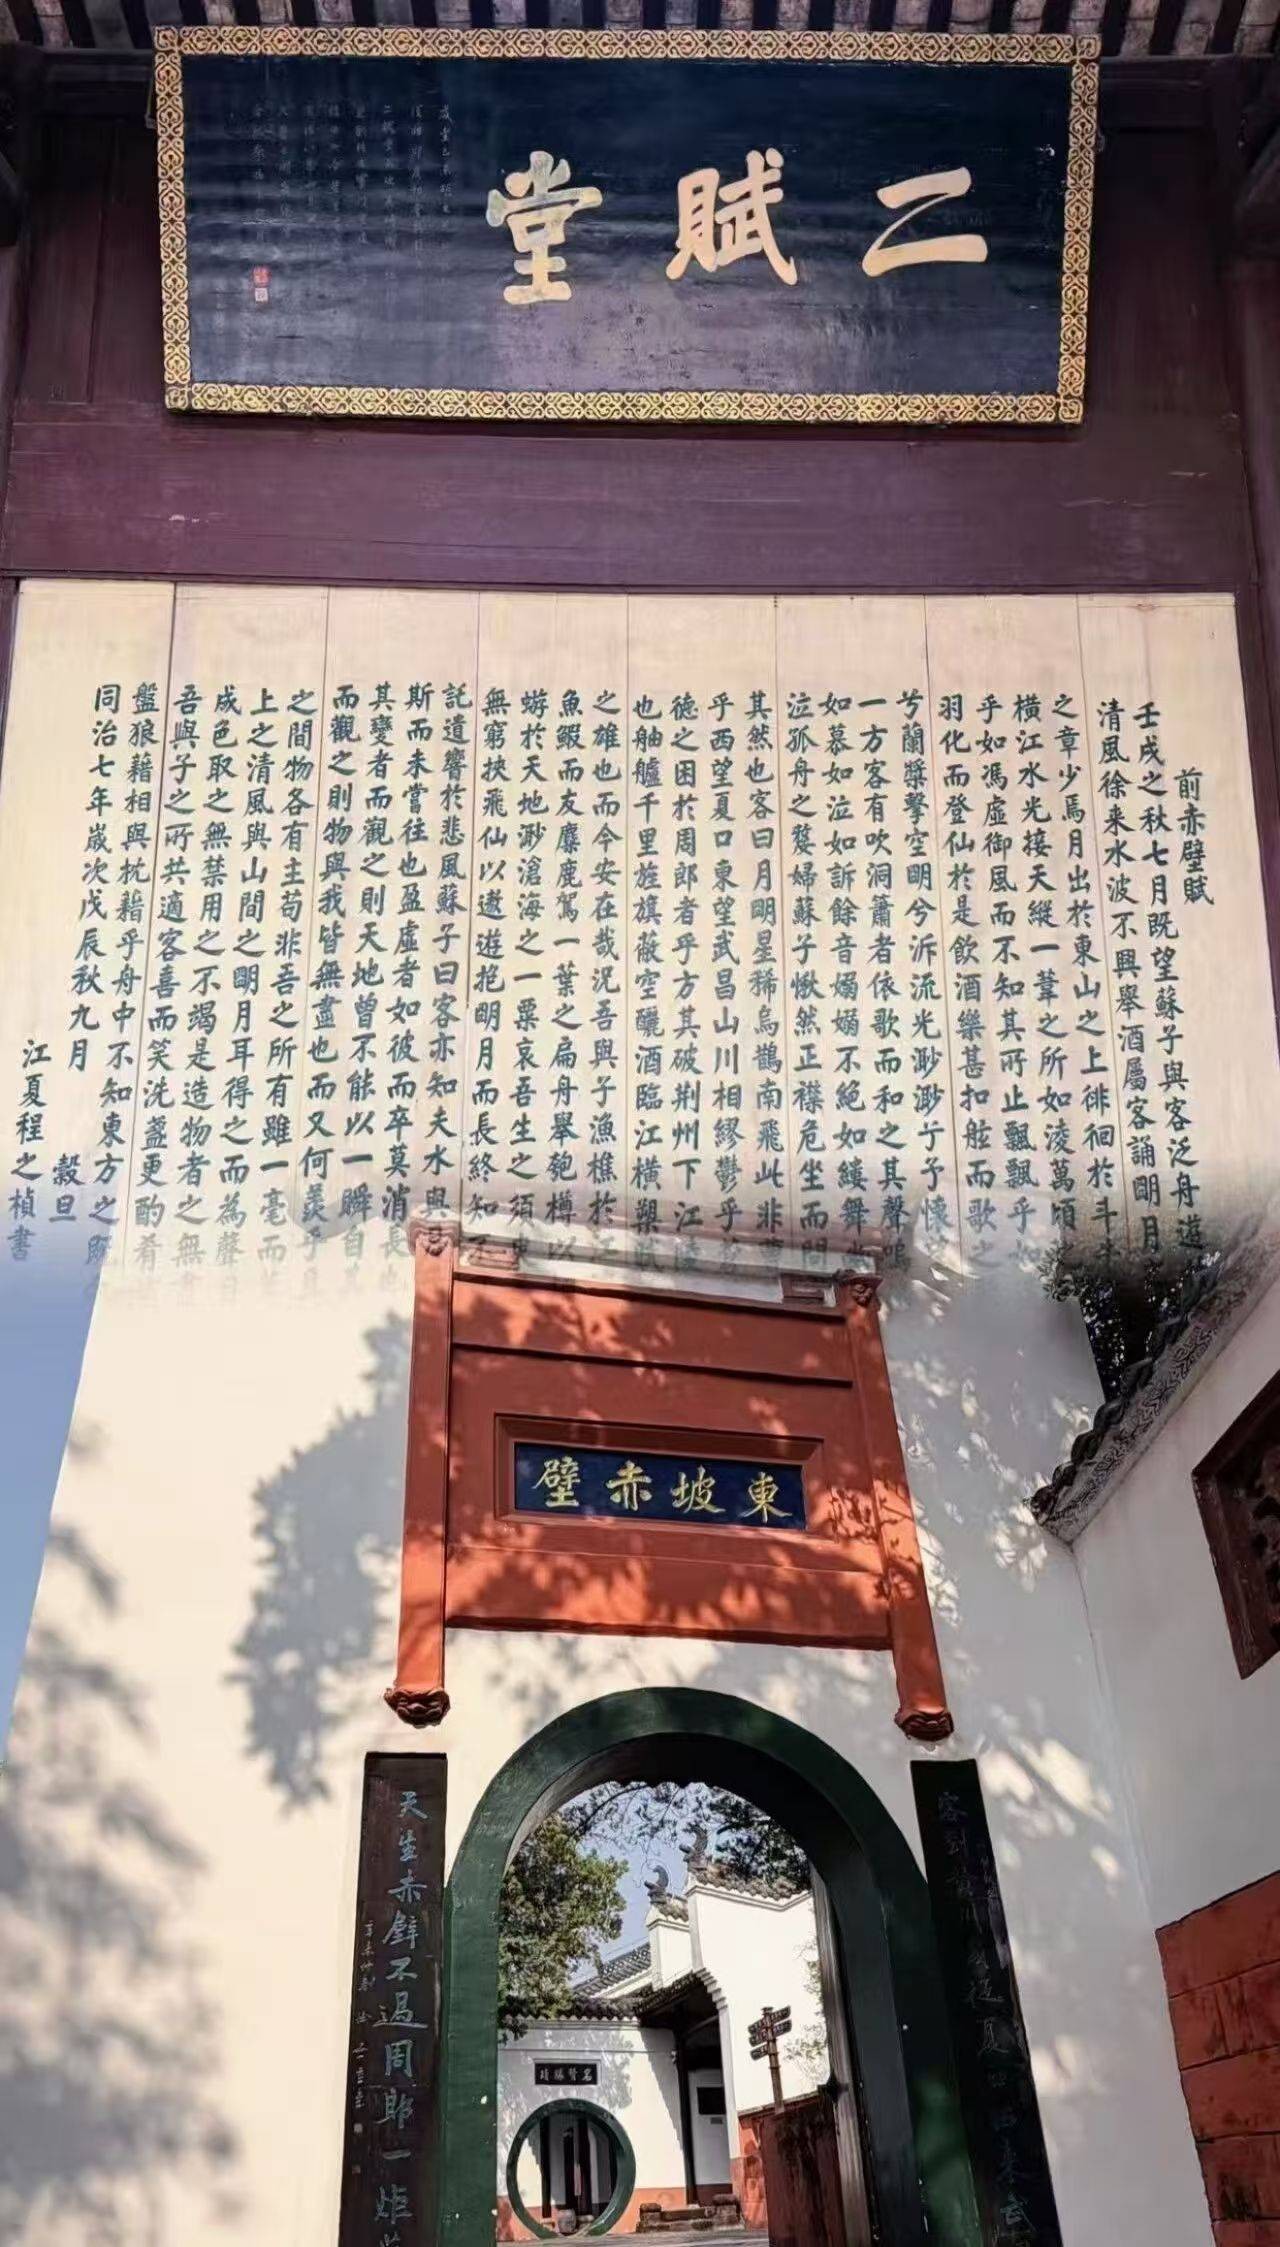 二賦堂
前赤壁賦
壬戌之秋七月既望蘇子與客泛舟遊
清風徐来水波不興舉酒屬客誦明月
之章少焉月出於東山之上徘徊於斗
橫江水光接天縱一葦之所如淩萬頃
乎如馮虛御風而不知其所止飄飄乎如
羽化而登仙於是飲酒樂甚扣舷而歌之
兮蘭槳擊空明兮泝流光渺渺兮予懷
一方客有吹洞簫者依歌而和之其聲嗚
如慕如泣如訴餘音嫋嫋不絕如縷舞
泣孤舟之嫠婦蘇子愀然正襟危坐而問
其然也客曰月明星稀烏鵲南飛此非
乎西望夏口東望武昌山川相繆鬱乎
德之困於周郎者乎方其破荆州下江陵
也舳艫千里旌旗蔽空釃酒臨江橫槊賦
之雄也而今安在哉況吾與子漁樵於江
魚鰕而友麋鹿駕一葉之扁舟舉匏樽以
蜉於天地渺滄海之一粟哀吾生之須臾
無窮挾飛仙以遨遊抱明月而長終知不
託遺響於悲風蘇子曰客亦知夫水與
斯而未嘗往也盈虛者如彼而卒莫消長
其變者而觀之則天地曾不能以一瞬自
而觀之則物與我皆無盡也而又何羨乎
之間物各有主苟非吾之所有雖一毫而
上之清風與山間之明月耳得之而為聲
成色取之無禁用之不竭是造物者之無
吾與子之所共適客喜而笑洗盞更酌肴
盤狼藉相與枕藉乎舟中不知東方之既
同治七年歲次戊辰秋九月
穀旦
江夏程之楨書
東坡赤壁
客到
夏
天生赤壁不過周郎一炬